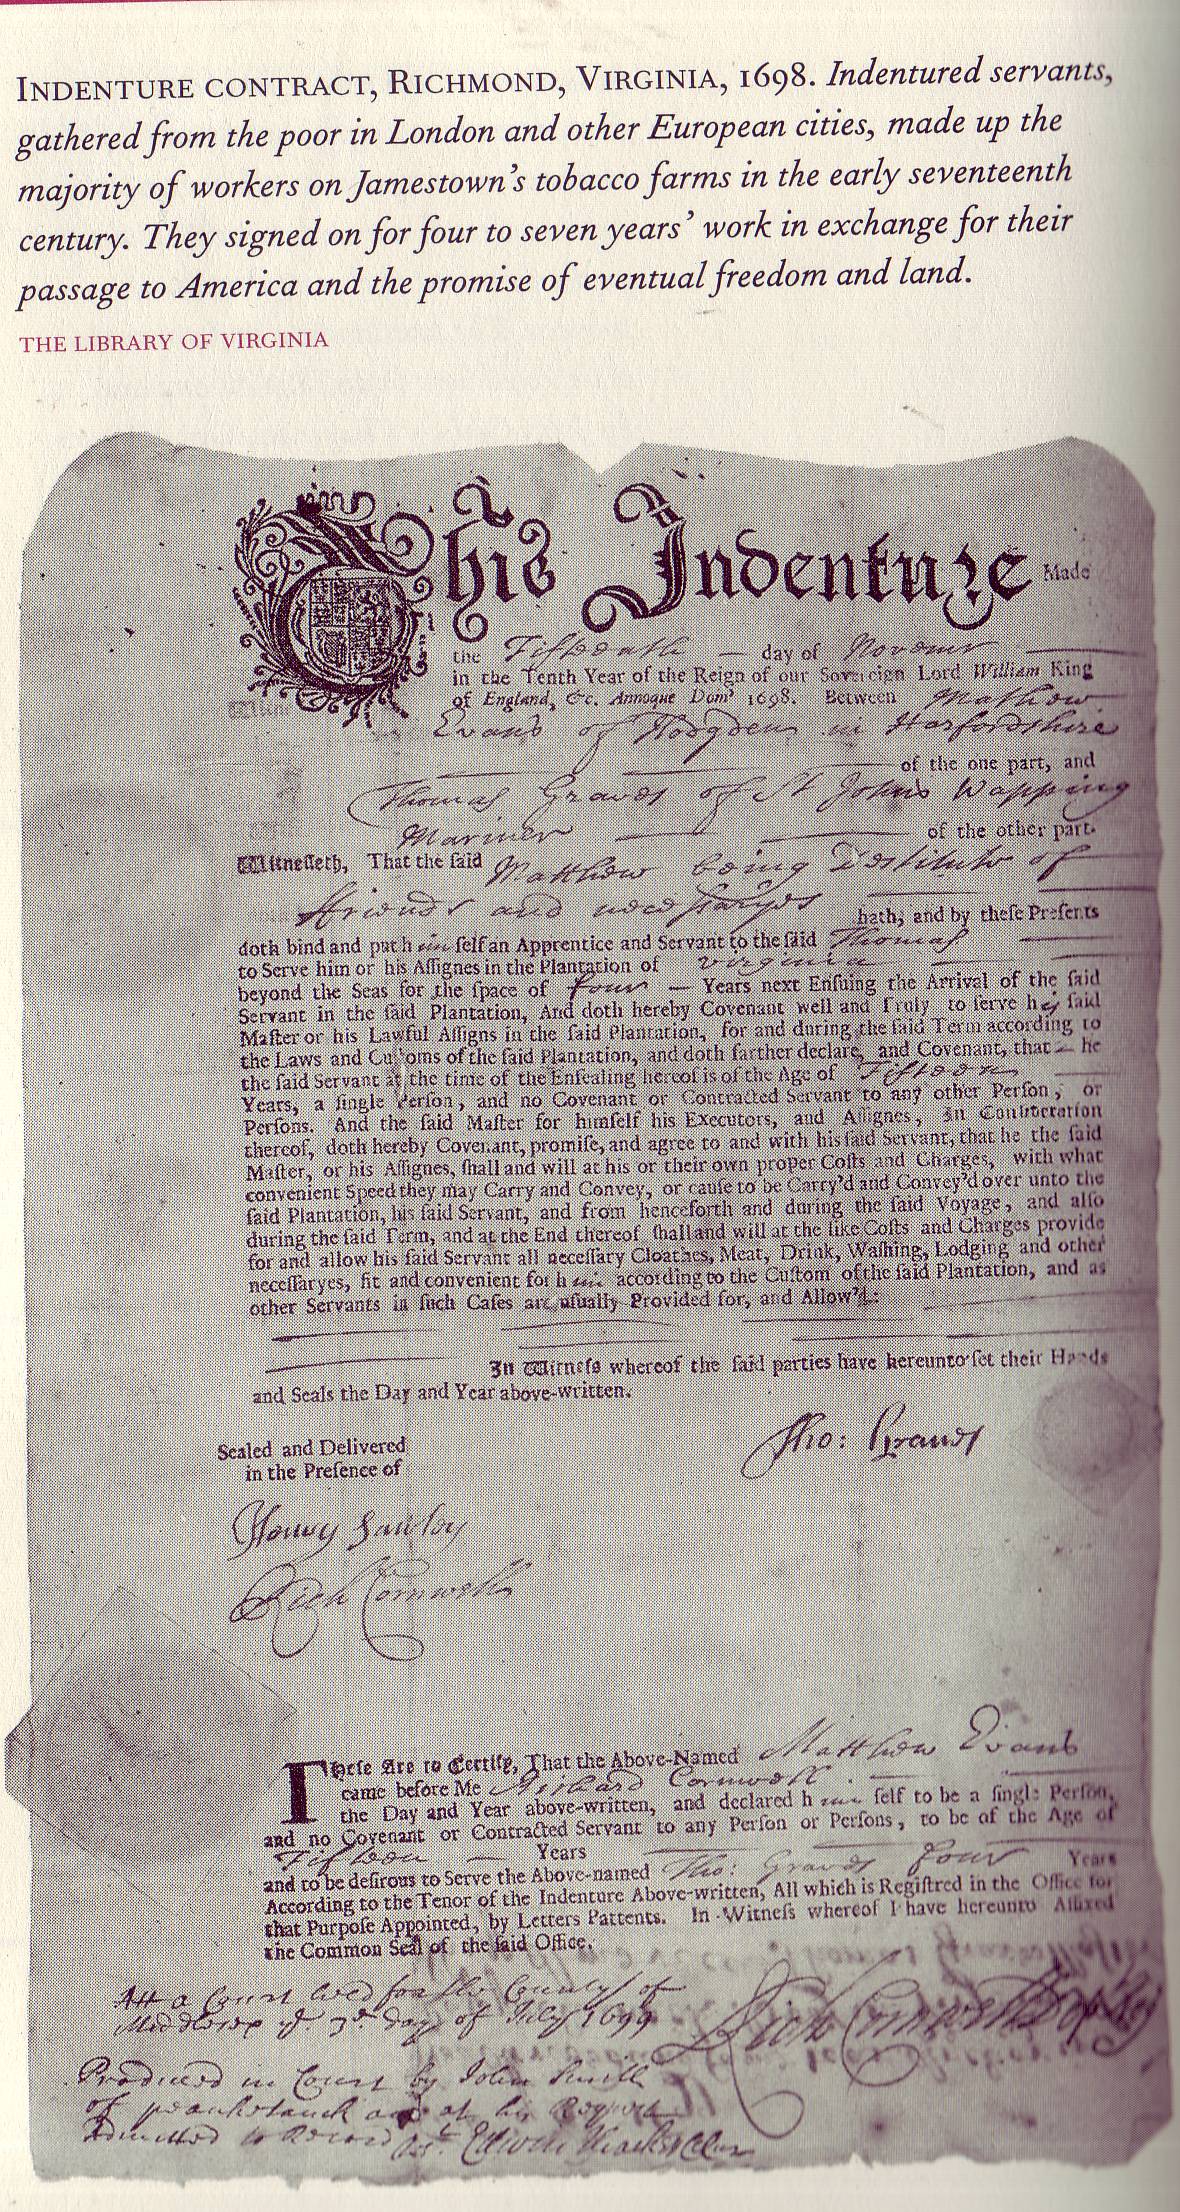 INDENTURE CONTRACT, RICHMOND, VIRGINIA, 1698. Indentured servants,
gathered from the poor in London and other European cities, made up the
majority of workers on Jamestown's tobacco farms in the early seventeenth
century. They signed on for four to seven years' work in exchange for their
passage to America and the promise of eventual freedom and land.
THE LIBRARY OF VIRGINIA
This Indenture Made
the Fifteenth — day of Novemr
in the Tenth Year of the Reign of our Sovereign Lord William King
of England, &c. Annoque Dom' 1698. Between Mathew
Evans of Hodgden in Harfordshire
of the one part, and
Thomas Graves of St Johns Wapping
Mariner of the other part.
Witneſſeth, That the ſaid Matthew being Destitute of
friends and necessaryes hath, and by theſe Preſents
doth bind and put him ſelf an Apprentice and Servant to the ſaid Thomas
to Serve him or his Aſſignes in the Plantation of Virginia
beyond the Seas for the ſpace of four — Years next Enſuing the Arrival of the ſaid
Servant in the ſaid Plantation, And doth hereby Covenant well and Truly to ſerve his ſaid
Maſter or his Lawful Aſſigns in the ſaid Plantation, for and during the ſaid Term according to
the Laws and Cuſtoms of the ſaid Plantation, and doth farther declare, and Covenant, that — he
the ſaid Servant at the time of the Enſealing hereof is of the Age of Fifteen
Years, a ſingle Perſon, and no Covenant or Contracted Servant to any other Perſon, or
Perſons. And the ſaid Maſter for himſelf his Executors, and Aſſignes, In Conſideration
thereof, doth hereby Covenant, promiſe, and agree to and with his ſaid Servant, that he the ſaid
Maſter, or his Aſſignes, ſhall and will at his or their own proper Coſts and Charges, with what
convenient Speed they may Carry and Convey, or cauſe to be Carry'd and Convey'd over unto the
ſaid Plantation, his ſaid Servant, and from henceforth and during the ſaid Voyage, and alſo
during the ſaid Term, and at the End thereof ſhall and will at the like Coſts and Charges provide
for and allow his ſaid Servant all neceſſary Cloathes, Meat, Drink, Waſhing, Lodging and other
neceſſaryes, fit and convenient for him according to the Cuſtom of the ſaid Plantation, and as
other Servants in ſuch Caſes are uſually Provided for, and Allow'd:
In Witneſs whereof the ſaid parties have hereunto ſet their Hands
and Seals the Day and Year above-written.
Tho: Graves
Sealed and Delivered
in the Preſence of
Rich Cornwell
Theſe Are to Certify, That the Above-Named Matthew Evans
came before Me Richard Cornwell
the Day and Year above-written, and declared him ſelf to be a ſingle Perſon,
and no Covenant or Contracted Servant to any Perſon or Perſons, to be of the Age of
Fifteen — Years
and to be deſirous to Serve the Above-named Tho: Graves four Years
According to the Tenor of the Indenture Above-written, All which is Regiſtred in the Office for
that Purpoſe Appointed, by Letters Pattents. In Witneſs whereof I have hereunto Affixed
the Common Seal of the ſaid Office.
Att a Court held for the County of
Middlesex ye 3d. day of July 1699
Rich Cornwell
Produced in Court by John Smith
of and at his Request
Admitted to Record